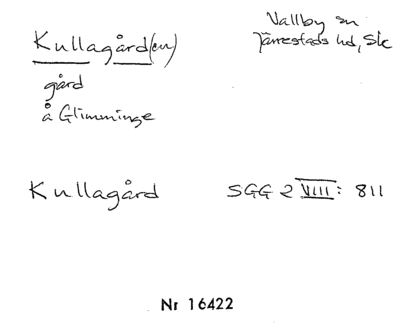 Kullagård(en)
Vallby sn
Järrestads hd, Sk
gård
å Glimminge
Kullagård
SGG 2 VIII: 811
Nr 16422